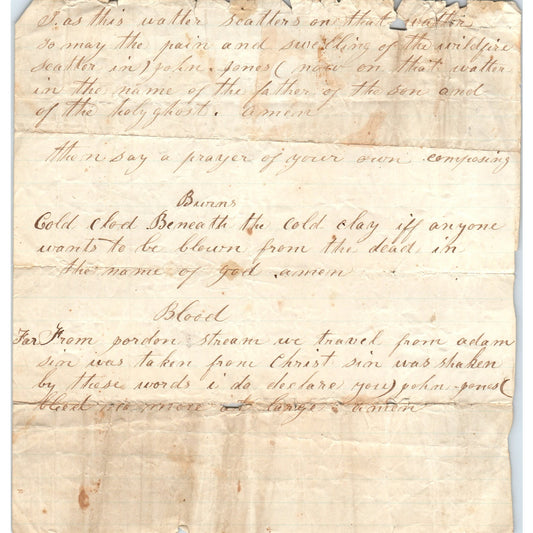 I. as this watter scatters on that watter
so may the pain and swelling of the wildfire
scatter in) john Jones ( now on that watter
in the name of the father of the son and
of the holy ghost. amen
then say a prayer of your own composing
Burns
Cold clod Beneath the cold clay iff anyone
wants to be blown from the dead in
the name of god amen
Blood
Far From pordon stream we travel from adam
sin was taken from Christ sin was shaken
by these words i do declare you) john Jones (
bleed no more at large. amen